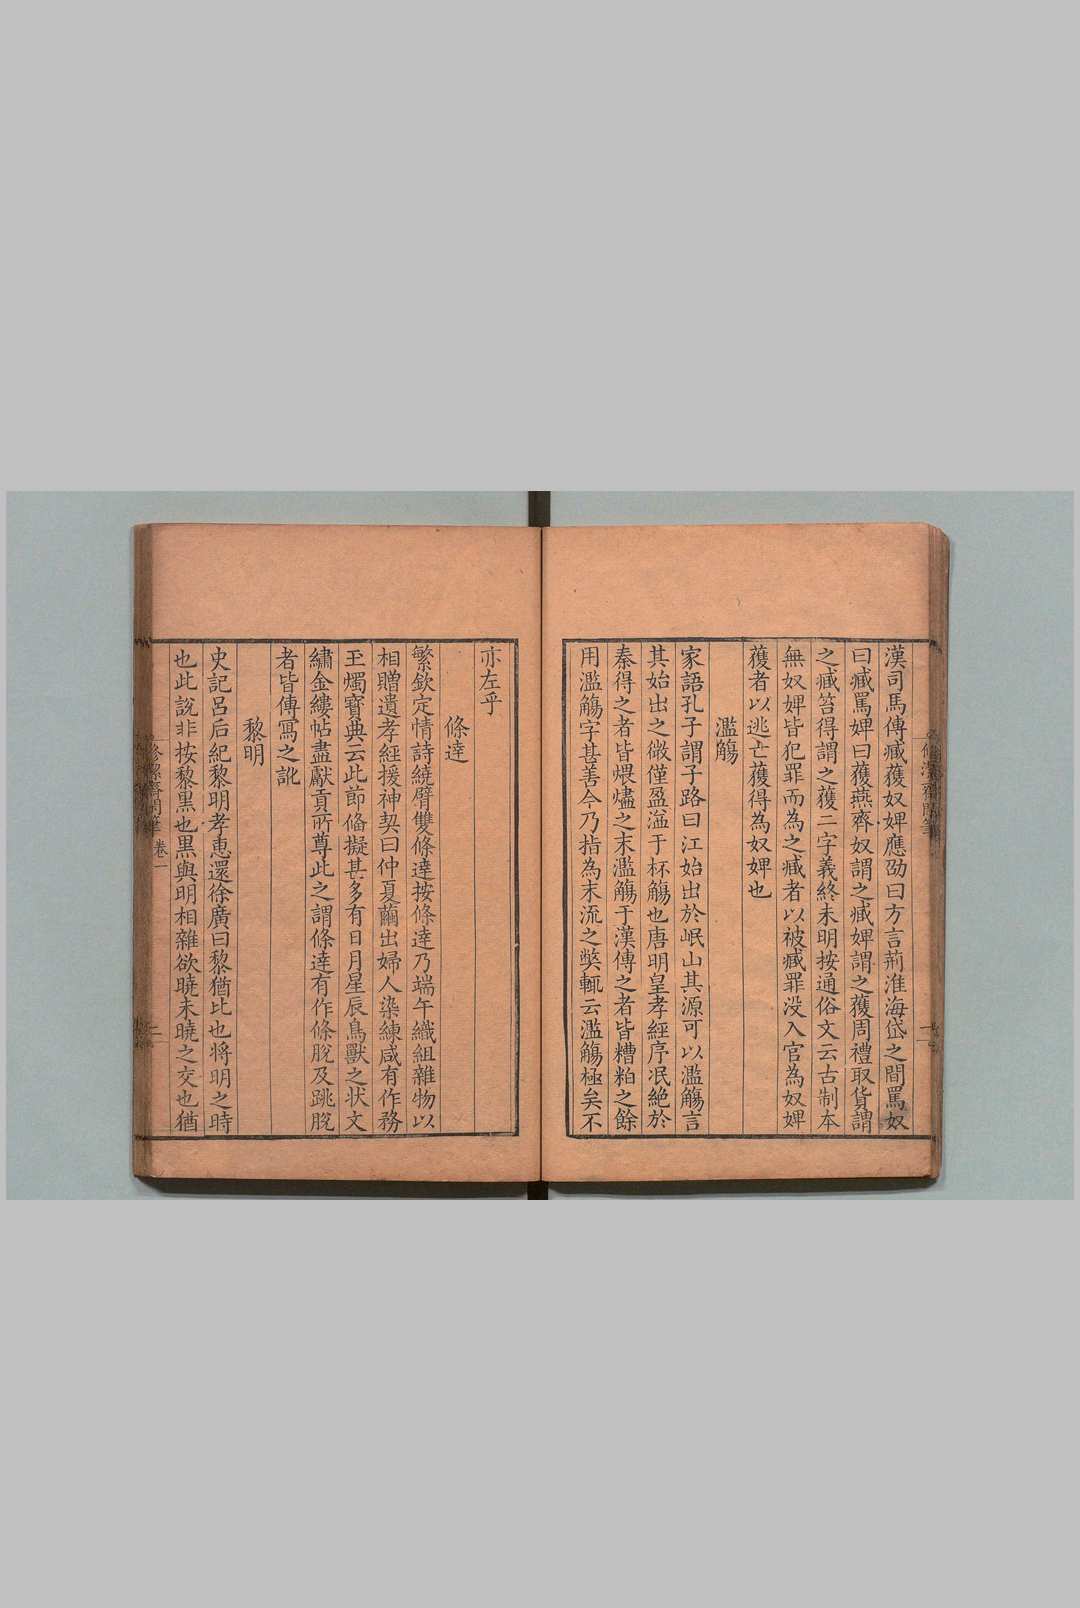 漢司馬傳臧獲奴婢應劭曰方言荊淮海岱之間罵奴
曰臧罵婢曰獲燕齊奴謂之臧婢謂之獲周禮取貨謂
之臧笞得謂之獲二字義終未明按通俗文云古制本
無奴婢皆犯罪而為之臧者以被臧罪没入官為奴婢
獲者以逃亡獲得為奴婢也
濫觴
家語孔子謂子路曰江始出於岷山其源可以濫觴言
其始出之微僅盈溢于杯觴也唐明皇孝經序泯絶於
秦得之者皆煨燼之末濫觴于漢傳之者皆糟粕之餘
用濫觴字甚善今乃指為末流之獘輒云濫觴極矣不
亦左乎
條達
繁欽定情詩繞臂雙條達按條達乃端午織組雜物以
相贈遺孝經援神契曰仲夏繭出婦人染練咸有作務
玉燭寶典云此節俻擬甚多有日月星辰鳥獸之状文
繡金縷帖畫獻貢所尊此之謂條達有作條脫及跳脫
者皆傳寫之訛
黎明
史記呂后紀黎明孝惠還徐廣曰黎猶比也將明之時
也此說非按黎黒也黒與明相雜欲曉未曉之交也猶
卷一
二